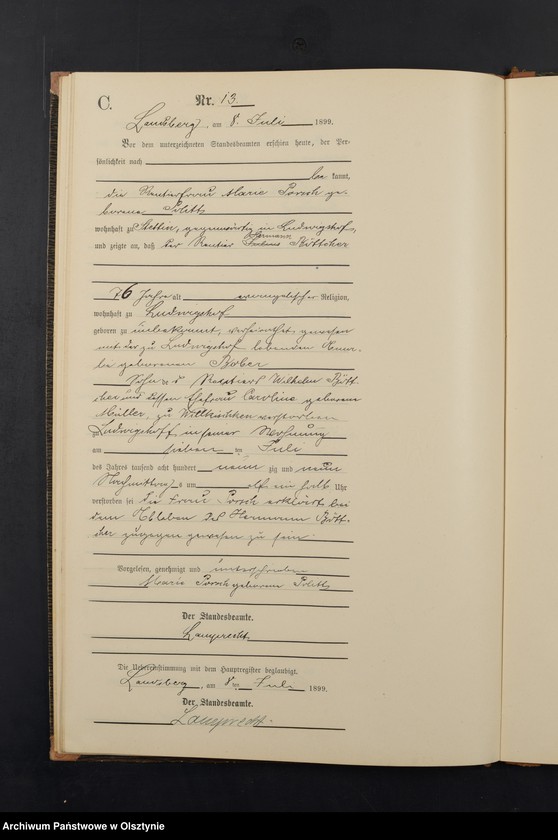 C.
Nr. 13.
Landsberg, am 8. Juli 1899.
Vor dem unterzeichneten Standesbeamten erschien heute, der Per-
sönlichkeit nach
be kannt,
die Rentierfrau Marie Porsch ge-
borene
wohnhaft zu Stettin, gegenwärtig in Ludwigshof,
und zeigte an, daß der Rentier Hermann Böttcher
76 Jahre alt evangelischer Religion,
wohnhaft zu Ludwigshof
geboren zu unbekannt, verheirathet gewesen
mit der zu Ludwigshof lebenden
geborenen Bober
Sohn des Rentiers Wilhelm Bött-
cher und dessen Ehefrau Caroline geborene
Müller, zu verstorben
zu Ludwigshof, in seiner Wohnung
am sieben ten Juli
des Jahres tausend acht hundert neun zig und neun
Nachmittags um elf ein halb Uhr
verstorben sei die Frau Porsch erklärt, bei
dem Ableben des Hermann Bött-
cher zugegen gewesen zu sein.
Vorgelesen, genehmigt und unterschrieben
Marie Porsch geborene
Der Standesbeamte.
Lamprecht.
Die Uebereinstimmung mit dem Hauptregister beglaubigt.
Landsberg, am 8ten Juli 1899.
Der Standesbeamte.
Lamprecht.
Archiwum Państwowe w Olsztynie